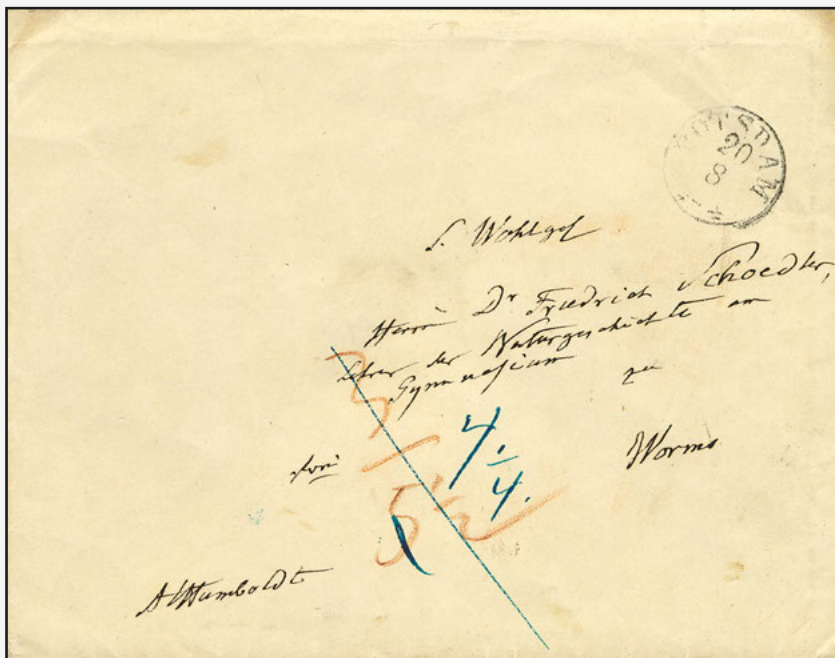 POTSDAM
20
8
S. Wohlgeb
Herrn Dr Friedrich Schoedler,
Lehrer der Naturgeschichte am
Gymnasium zu
Worms
frei
3
5½
4.
4.
AlHumboldt